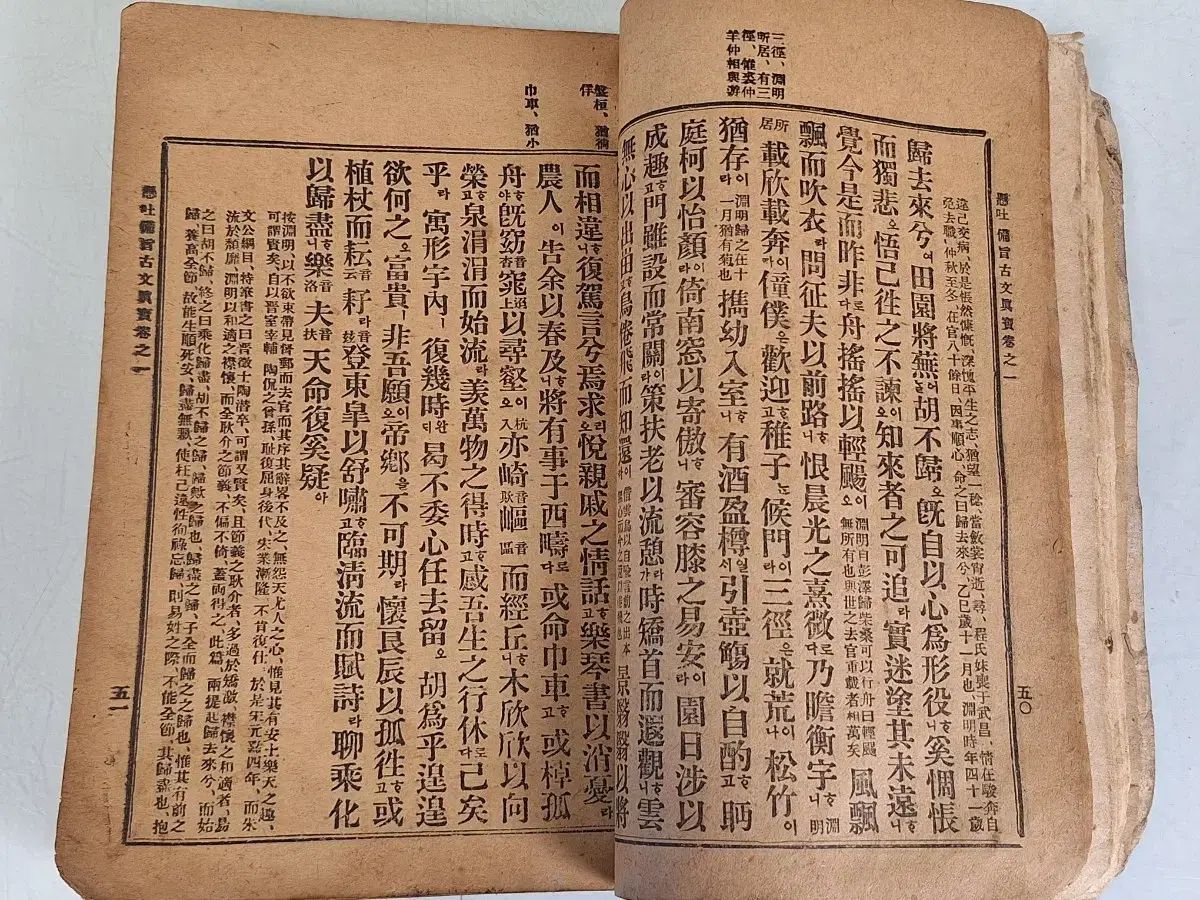 三徑、淵明
所居、有三
徑、惟裘仲
羊仲相與游
懸吐 備旨古文眞寶卷之一
五〇
違己交病、於是悵然慷慨、深愧平生之志、猶望一稔、當斂裳宵逝、尋、程氏妹喪于武昌、情在駿奔、自
免去職、仲秋至冬、在官八十餘日、因事順心、命之曰歸去來兮、乙巳歲十一月也、淵明時年四十一歲
歸去來兮여 田園將蕪어늘 胡不歸오 旣自以心爲形役니 奚惆悵
而獨悲오 悟已往之不諫이오 知來者之可追라 實迷塗其未遠니
覺今是而昨非로다 舟搖搖以輕颺오 淵明自彭澤歸柴桑可以行舟曰輕颺 無所有也與世之去官重載者相萬矣 風飄
飄而吹衣라 問征夫以前路니 恨晨光之熹微로다 乃瞻衡宇니 淵明
所居 載欣載奔이라 僮僕은 歡迎고 稚子는 候門이라 三徑은 就荒이나 松竹이
猶存이라 淵明歸之在十一月猶有菊也 携幼入室니 有酒盈樽일세 引壺觴以自酌고 眄
庭柯以怡顏이라 倚南窓以寄傲니 審容膝之易安이라 園日涉以
成趣고 門雖設而常關이라 策扶老以流憩라가 時矯首而遐觀니 雲
無心以出岫고 鳥倦飛而知還이라 景翳翳以將
盤桓、猶徜
徉
巾車、猶小
而相違니 復駕言兮焉求리오 悅親戚之情話고 樂琴書以消憂라
農人이 告余以春及니 將有事于西疇로다 或命巾車고 或棹孤
舟야 旣窈音杳窕上沼以尋壑이오 亦崎嶇音區而經丘니 木欣欣以向
榮고 泉涓涓而始流라 羨萬物之得時고 感吾生之行休로다 已矣
乎라 寓形宇內ㅣ 復幾時완 曷不委心任去留오 胡爲乎遑遑
欲何之오 富貴ㅣ 非吾願이오 帝鄕을 不可期라 懷良辰以孤往고 或
植杖而耘音云耔音玆라 登東皐以舒嘯고 臨淸流而賦詩라 聊乘化
以歸盡니 樂音洛夫音扶天命復奚疑아
按淵明、以不欲束帶見督郵而去官而其序其辭畧不及之、無怨天尤人之心、惟見其有安土樂天之趣、
可謂賢矣、自以晉室宰輔陶侃之曾孫、耻復屈身後代、宋業漸隆、不肯復仕、於是宋元嘉四年、而朱
文公綱目、特筆書之曰晋徵士陶潛卒、可謂又賢矣、且節義之耿介者、多過於矯激、襟懷之和適者、易
流於頹靡、淵明以和適之襟懷、而全耿介之節義、不偏不倚、蓋兩得之、此篇、兩提起歸去來兮、而始
之曰胡不歸、終之曰乘化歸盡、胡不歸之歸、歸歟之歸也、歸盡之歸、子全而歸之之歸也、惟其有前之
歸、養高全節、故能生順死妥、歸盡無歉、使枉己違性徇祿忘歸、則易姓之際、不能全節、其歸盡也、抱
懸吐備旨古文眞寶卷之一
五一